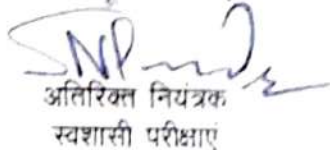 अतिरिक्त नियंत्रक
स्वशासी परीक्षाएं